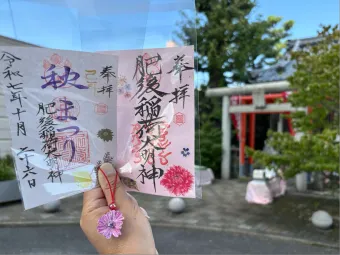 奉拝
肥後稲荷大明神
奉拝
秋まつり
肥後稲荷大明神
令和七年十月
二十六日